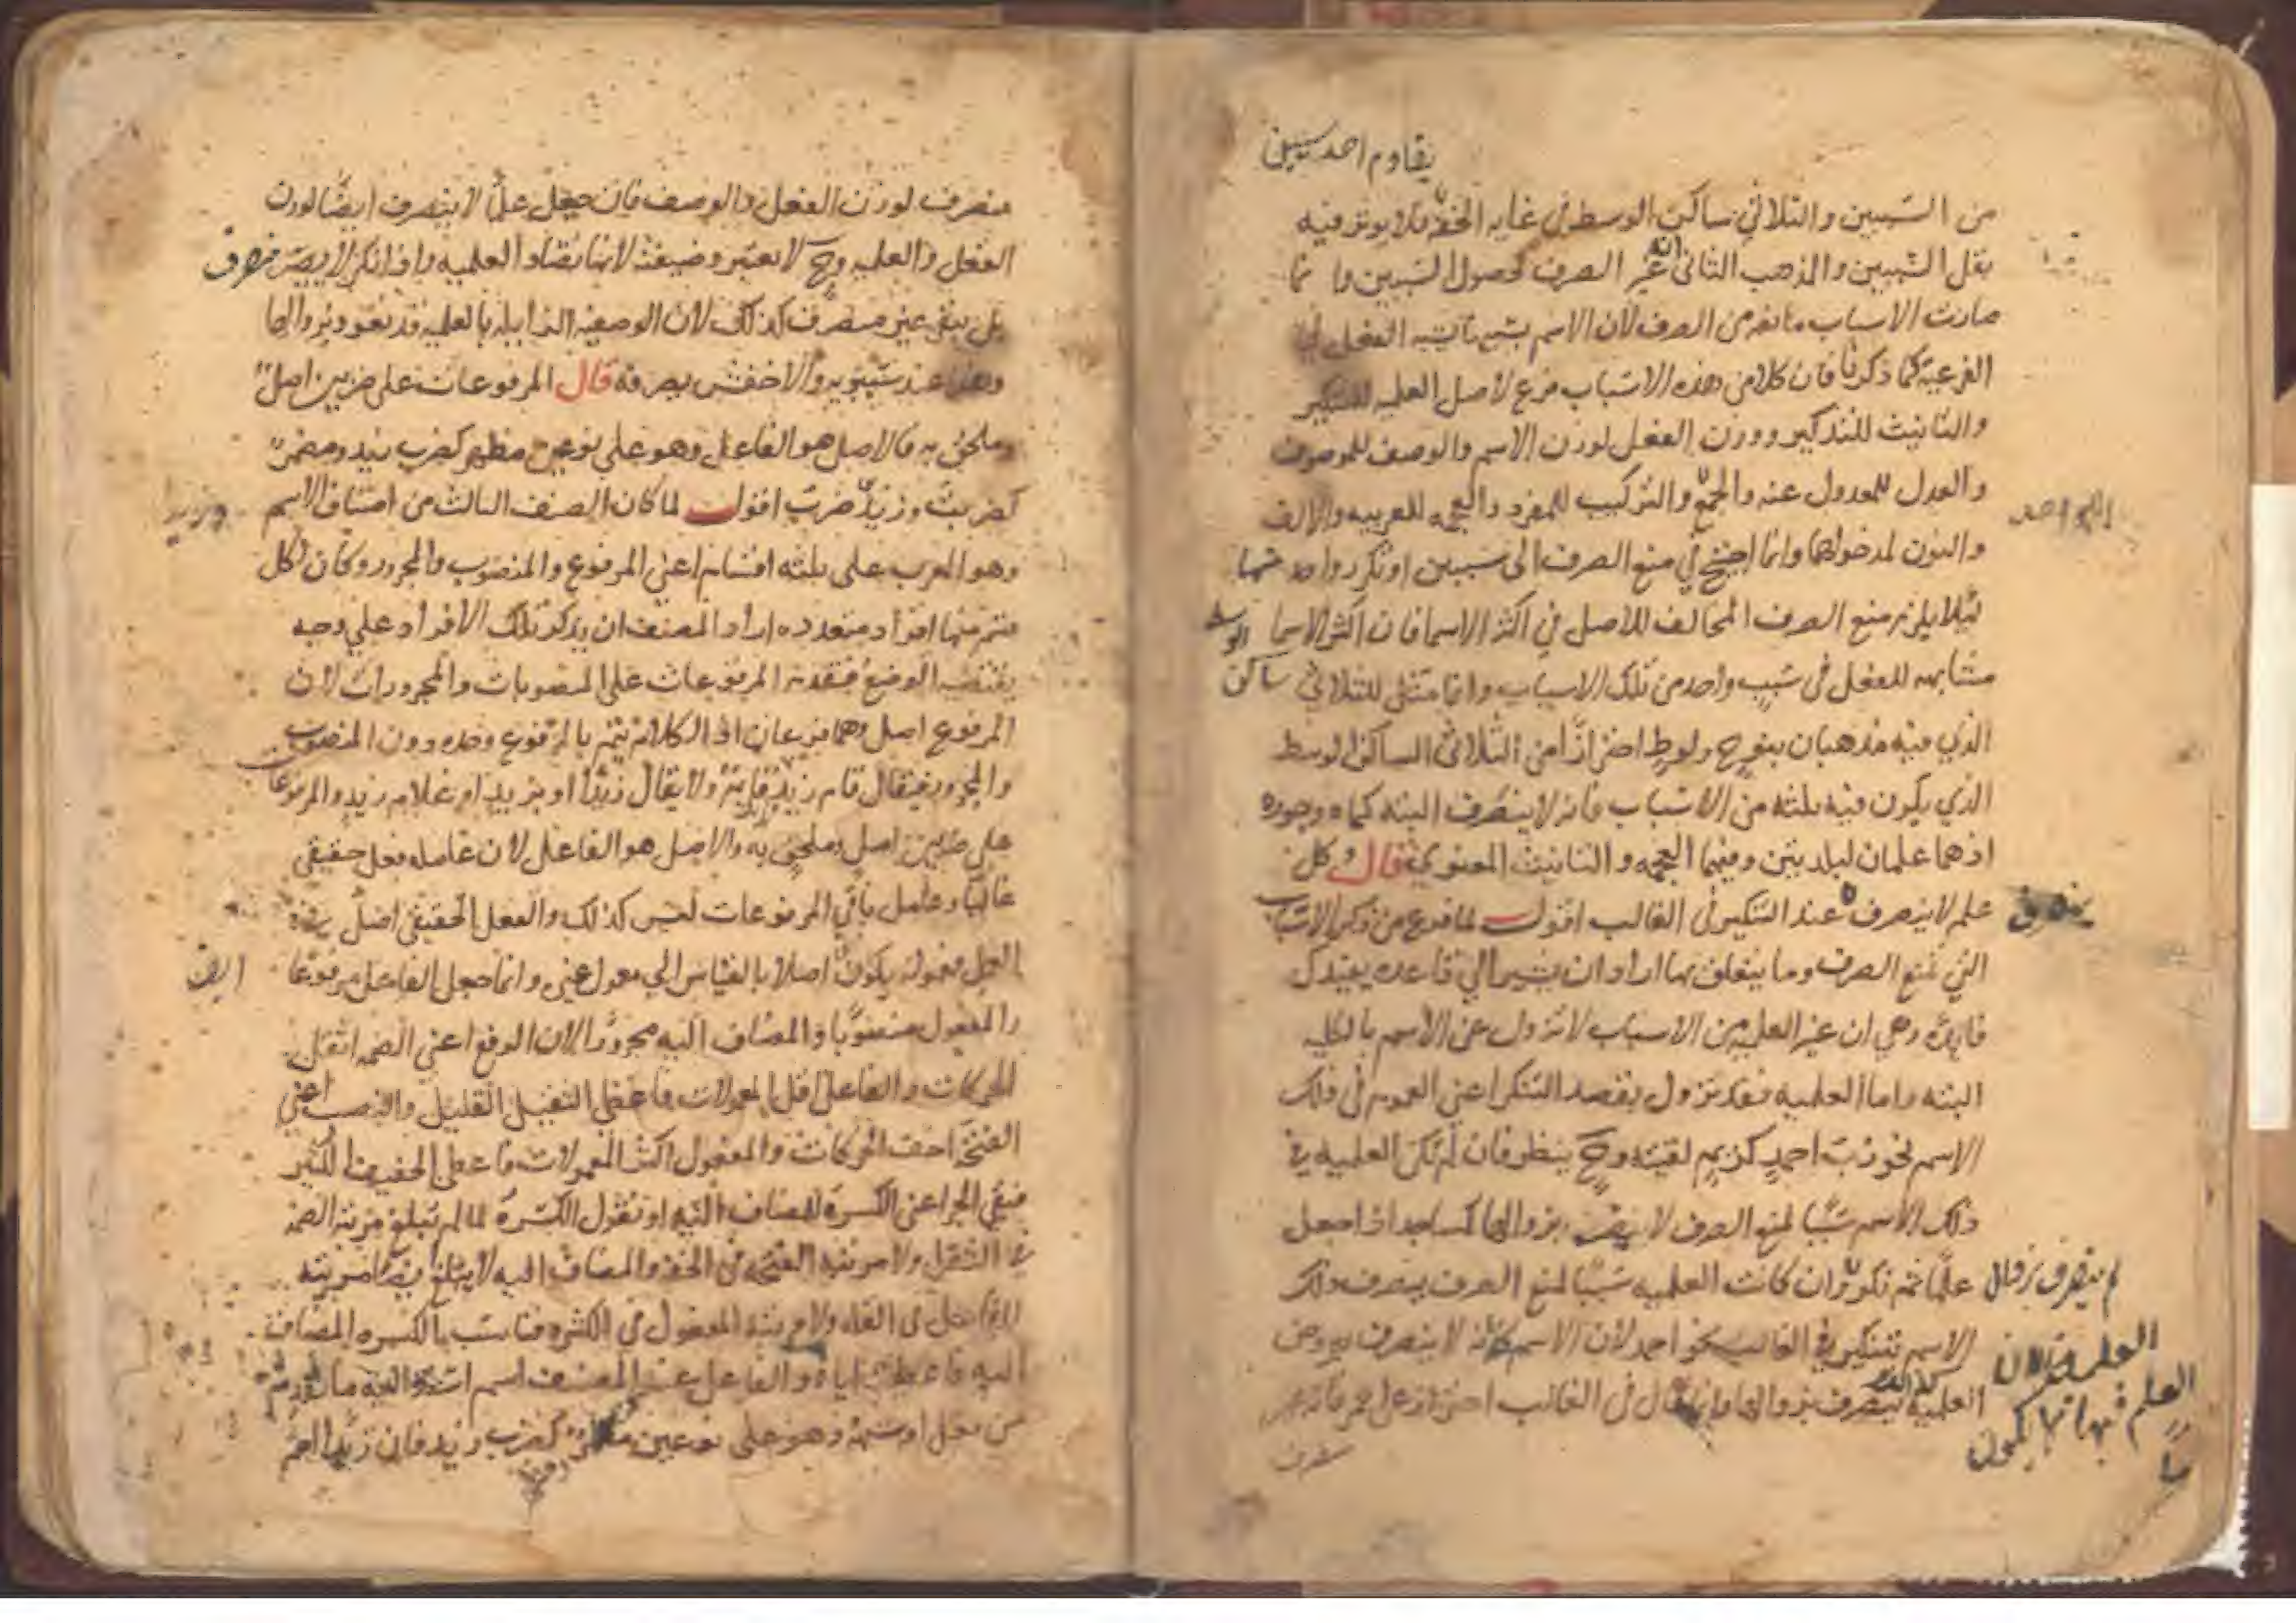 يقاوم احد سببين
من السببين والثلاثي ساكن الوسط في غايه الخفه فلا يوثر فيه
ثقل السببين والمذهب الثاني انه غير الصرف لحصول السببين وانما
صارت الاسباب مانعه من الصرف لان الاسم بسببها يشبه الفعل في
الفرعيه كما ذكرنا فان كلا من هذه الاسباب فرع لاصل العلميه للتنكير
والتانيث للتذكير ووزن الفعل لوزن الاسم والوصف للموصوف
والعدل للمعدول عنه والجمع والتركيب للمفرد والعجمه للعربيه والالف
للواحد
والنون لمدخولهما وانما احتيج في منع الصرف الى سببين او تكرر واحد منهما
لئلا يلزم منع الصرف المخالف للاصل في اكثر الاسما فان اكثر الاسما
مشابهه للفعل في سبب واحد من تلك الاسباب وانما مثل للثلاثي ساكن الوسط
الذي فيه مذهبان بنوح ولوط احترازا من الثلاثي الساكن الوسط
الذي يكون فيه ثلثه من الاسباب فانه لا ينصرف البته كماه وجوره
اذ هما علمان لبلدتين وفيهما العجمه والتانيث المعنوي قال وكل
علم لا ينصرف ينصرف عند التنكير في الغالب اقول لما فرغ من ذكر الاسباب
التي تمنع الصرف وما يتعلق بها اراد ان يشير الي قاعده يفيدك
فايدة وهي ان غير العلميه من الاسباب لا تزول عن الاسم بالكليه
البته واما العلميه فقد تزول بقصد التنكير اعني العموم في ذلك
الاسم نحو رب احمد كريم لقيته وح ينظر فان لم تكن العلميه في
ذلك الاسم سببا لمنع الصرف لا ينصرف بزوالها كمساجد اذا جعل
علما ثم نكر وان كانت العلميه سببا لمنع الصرف ينصرف ذلك
الاسم بتنكيره في الغالب نحو احمد لان الاسم كانه لا ينصرف
العلميه كذلك ينصرف بزوالها وانما قال في الغالب احترازا عن احمر فانه غير
منصرف
لم ينصرف بزوال
العلميه لان
العلم فيها لا يكون
منصرف لوزن الفعل والوصف فان جعل علما لا ينصرف ايضا لوزن
الفعل والعلميه وح لا تعتبر وصيفته لانها تضاد العلميه واذا نكر لا يصير منصرف
بل يبقى غير منصرف كذلك لان الوصفيه الزايله بالعلميه قد تعود بزوالها
وهذا عند سيبويه والاخفش يصرفه قال المرفوعات على ضربين اصل
وملحق به فالاصل هو الفاعل وهو على نوعين مظهر كضرب زيد ومضمر
كضربت وزيد ضرب اقول لما كان الصنف الثالث من اصناف الاسم
وهو المعرب على ثلثه اقسام اعني المرفوع والمنصوب والمجرور وكان لكل
قسم منها افراد متعدده اراد المصنف ان يذكر تلك الافراد على وجه
يقتضيه الوضع فقدم المرفوعات على المنصوبات والمجرورات لان
المرفوع اصل وهما فرعان اذ الكلام يتم بالمرفوع وحده دون المنصوب
والمجرور فيقال قام زيد وزيد قايم ولا يقال زيدا او بزيد او غلام زيد والمرفوعات
على ضربين اصل وملحق به والاصل هو الفاعل لان عامله فعل حقيقي
غالبا وعامل باقي المرفوعات ليس كذلك والفعل الحقيقي اصل في
العمل فمعموله يكون ايضا اصلا بالقياس الى معمول غيره وانما جعل الفاعل مرفوعا
والمفعول منصوبا والمضاف اليه مجرورا لان الرفع اعني الضمه اثقل
الحركات والفاعل اقل المعمولات فاعطي الثقيل القليل والنصب اعني
الفتحة اخف الحركات والمفعول اكثر المعمولات فاعطي الخفيف الكثير
فبقي الجر اعني الكسرة للمضاف اليه او نقول الكسرة لما لم تبلغ مرتبة الضمه
في الثقل ولا مرتبه الفتحه في الخفه والمضاف اليه لا يبلغ ايضا مرتبه
الفاعل في القله ولا مرتبه المفعول في الكثره فناسب بالكسره المضاف
اليه فاعطي اياه والفاعل عند المصنف اسم اسند اليه ما تقدمه
من فعل او شبهه وهو على نوعين مظهر كضرب زيد فان زيدا اسم